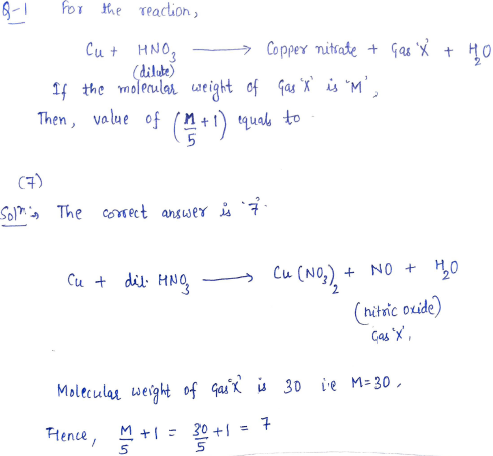 Q-1 For the reaction,
Cu + HNO₃ ⟶ Copper nitrate + Gas 'X' + H₂O
(dilute)
If the molecular weight of Gas 'X' is "M",
Then, value of (M/5 + 1) equals to .
(7)
Solⁿ:⇒ The correct answer is '7'.
Cu + dil. HNO₃ ⟶ Cu(NO₃)₂ + NO + H₂O
(nitric oxide)
Gas 'X',
Molecular weight of Gas 'X' is 30 i.e M=30.
Hence, M/5 + 1 = 30/5 + 1 = 7